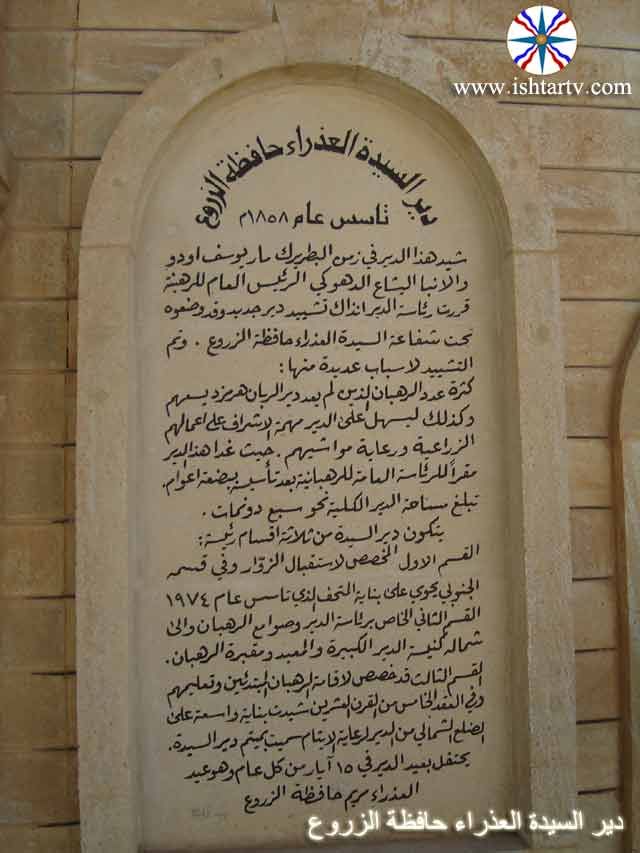 www.ishtartv.com
دير السيدة العذراء حافظة الزروع
تاسس عام ١٨٥٨م
شيد هذا الدير في زمن البطريرك مار يوسف اودو
والانبا اليشاع الدهوكي الرئيس العام للرهبنة
قررت رئاسة الدير انذاك تشييد دير جديد وقد وضعوه
تحت شفاعة السيدة العذراء حافظة الزروع . وتم
التشييد لاسباب عديدة منها :
كثرة عدد الرهبان الذين لم يعد دير الربان هرمزد يسعهم
وكذلك ليسهل على الدير مهمة الاشراف على اعمالهم
الزراعية ورعاية مواشيهم . حيث غدا هذا الدير
مقراً للرئاسة العامة للرهبانية بعد تأسيسه ببضعة اعوام.
تبلغ مساحة الدير الكلية نحو سبع دونمات .
يتكون دير السيدة من ثلاثة اقسام رئيسة :
القسم الاول المخصص لاستقبال الزوّار وفي قسمه
الجنوبي يحوي على بناية المتحف الذي تاسس عام ١٩٧٤
القسم الثاني الخاص برئاسة الدير وصوامع الرهبان والى
شماله كنيسة الدير الكبيرة والمعبد ومقبرة الرهبان.
القسم الثالث قد خصص لاقامة الرهبان المبتدئين وتعليمهم
وفي العقد الخامس من القرن العشرين شيدت بناية واسعة على
الضلع الشمالي من الدير لرعاية الايتام سميت بميتم دير السيدة.
يحتفل بعيد الدير في ١٥ آيار من كل عام وهو عيد
العذراء مريم حافظة الزروع
دير السيدة العذراء حافظة الزروع